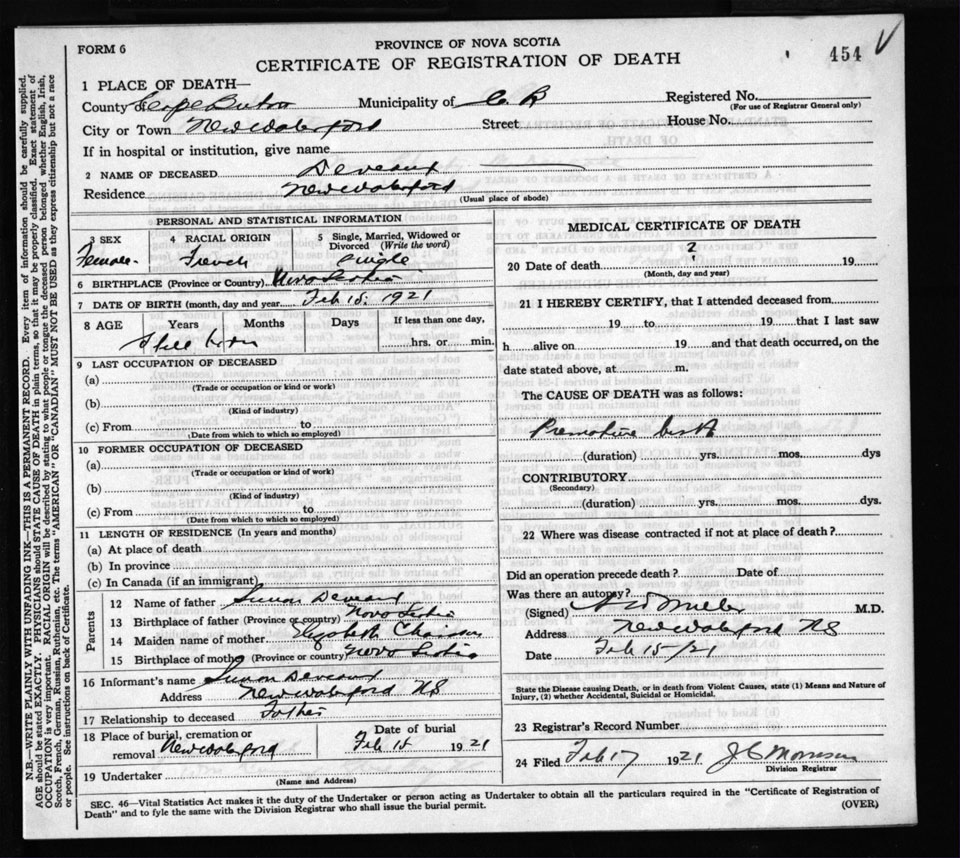 FORM 6
PROVINCE OF NOVA SCOTIA
CERTIFICATE OF REGISTRATION OF DEATH
454
1 PLACE OF DEATH—
County Cape Breton Municipality of C. B Registered No.
(For use of Registrar General only)
City or Town New Waterford Street House No.
If in hospital or institution, give name
2 NAME OF DECEASED Deveaux
Residence New Waterford
(Usual place of abode)
PERSONAL AND STATISTICAL INFORMATION
3 SEX 4 RACIAL ORIGIN 5 Single, Married, Widowed or Divorced (Write the word)
Female French Single
6 BIRTHPLACE (Province or Country) Nova Scotia
7 DATE OF BIRTH (month, day and year) Feb 15. 1921
8 AGE Years Months Days If less than one day,
Still born hrs. or min.
9 LAST OCCUPATION OF DECEASED
(a)
(Trade or occupation or kind or work)
(b)
(Kind of industry)
(c) From to
(Date from which to which so employed)
10 FORMER OCCUPATION OF DECEASED
(a)
(Trade or occupation or kind of work)
(b)
(Kind of industry)
(c) From to
(Date from which to which so employed)
11 LENGTH OF RESIDENCE (In years and months)
(a) At place of death
(b) In province
(c) In Canada (if an immigrant)
Parents
12 Name of father Simon Deveaux
13 Birthplace of father (Province or country) Nova Scotia
14 Maiden name of mother Elizabeth Chaisson
15 Birthplace of mother (Province or country) Nova Scotia
16 Informant's name Simon Deveaux
Address New Waterford NS
17 Relationship to deceased Father
18 Place of burial, cremation or removal New Waterford Date of burial Feb 15 1921
19 Undertaker
(Name and Address)
MEDICAL CERTIFICATE OF DEATH
20 Date of death ? 19
(Month, day and year)
21 I HEREBY CERTIFY, that I attended deceased from
19 to 19 that I last saw
h alive on 19 and that death occurred, on the
date stated above, at m.
The CAUSE OF DEATH was as follows:
Premature birth
(duration) yrs. mos. dys
CONTRIBUTORY
(Secondary)
(duration) yrs. mos. dys.
22 Where was disease contracted if not at place of death?
Did an operation precede death? Date of
Was there an autopsy?
(Signed) M.D.
Address New Waterford NS
Date Feb 15/21
State the Disease causing Death, or in death from Violent Causes, state (1) Means and Nature of
Injury, (2) whether Accidental, Suicidal or Homicidal.
23 Registrar's Record Number
24 Filed Feb 17 1921 J C Morrison
Division Registrar
SEC. 46—Vital Statistics Act makes it the duty of the Undertaker or person acting as Undertaker to obtain all the particulars required in the "Certificate of Registration of
Death" and to fyle the same with the Division Registrar who shall issue the burial permit. (OVER)
N.B.—WRITE PLAINLY WITH UNFADING INK—THIS IS A PERMANENT RECORD. Every item of information should be carefully supplied.
AGE should be stated EXACTLY. PHYSICIANS should STATE CAUSE OF DEATH in plain terms, so that it may be properly classified. Exact statement of
OCCUPATION is very important. RACIAL ORIGIN will be described by stating to what people or tongue the deceased person belonged whether English, Irish,
Scotch, French, German, Russian, Ruthenian, etc. The terms "AMERICAN" OR "CANADIAN" MUST NOT BE USED as they express citizenship but not a race
or people. See instructions on back of Certificate.